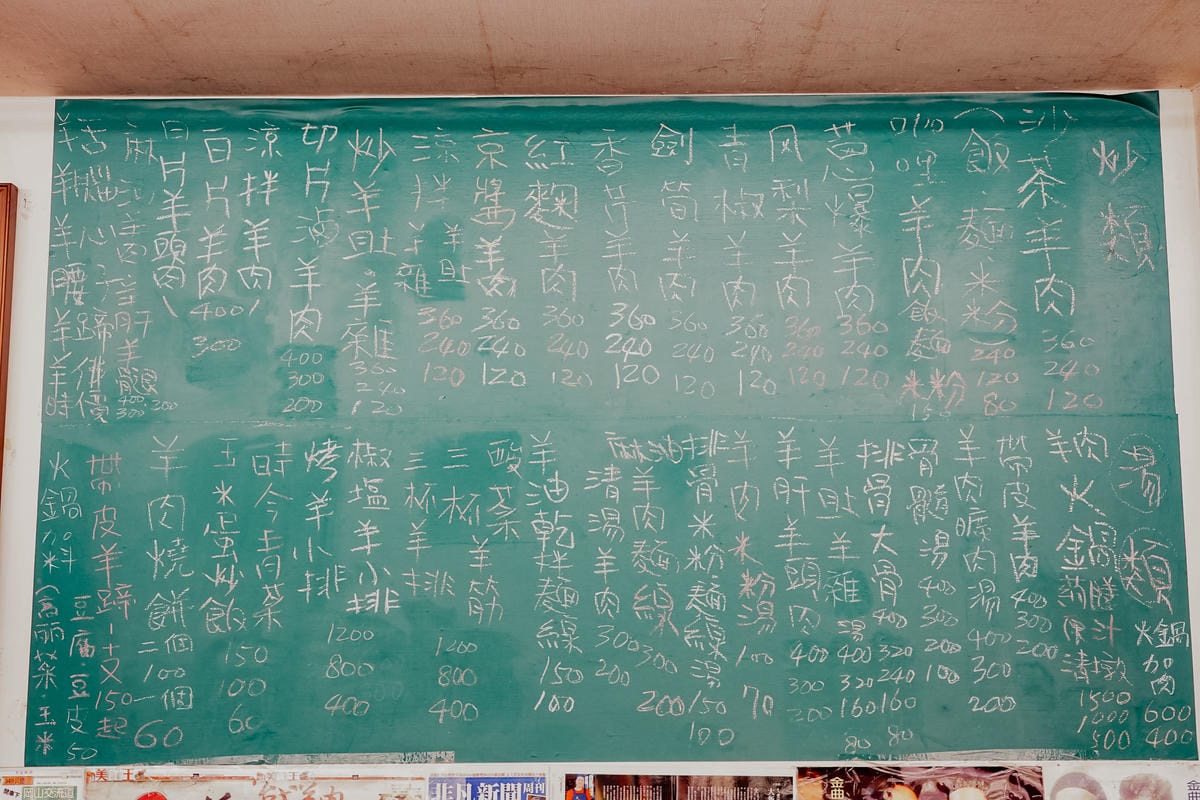 炒類
沙茶羊肉 360 240 120
(飯.麵.米粉) 240 120 80
咖哩羊肉飯麵米粉
蔥爆羊肉 360 240 120
風梨羊肉 360 240 120
青椒羊肉 360 240 120
劍筍羊肉 360 240 120
香芹羊肉 360 240 120
紅麴羊肉 360 240 120
京醬羊肉 360 240 120
涼拌羊肚羊雜 360 240 120
炒羊肚.羊雜 360 240 120
切片滷羊肉 400 300 200
涼拌羊肉
白片羊肉 400 300
白片羊頭肉
湯類
火鍋加肉 600 400
羊肉火鍋 1500 1000 500
帶皮羊肉 400 300 200
羊肉臊肉湯 400 300 200
骨髓湯 400 300 200 100
排骨大骨 400 320 240 160 80
羊肚羊雜湯 400 320 160 80
羊肝羊頭肉 400 300 200
羊肉米粉湯 100 70
排骨米粉麵線湯 150 100
麻油羊肉麵線 300 200
清湯羊肉 300 200
羊油乾拌麵線 150 100
酸菜羊筋
三杯
三杯羊排 1200 800 400
椒塩羊小排
烤羊小排 1200 800 400
時令青菜
玉米蛋炒飯 150 100 60
羊肉燒餅 二個100 一個60
帶皮羊蹄一支150起
火鍋加料 豆腐.豆皮 (高麗菜.玉米 50
岡山交流道
非凡新聞周刊
金曲